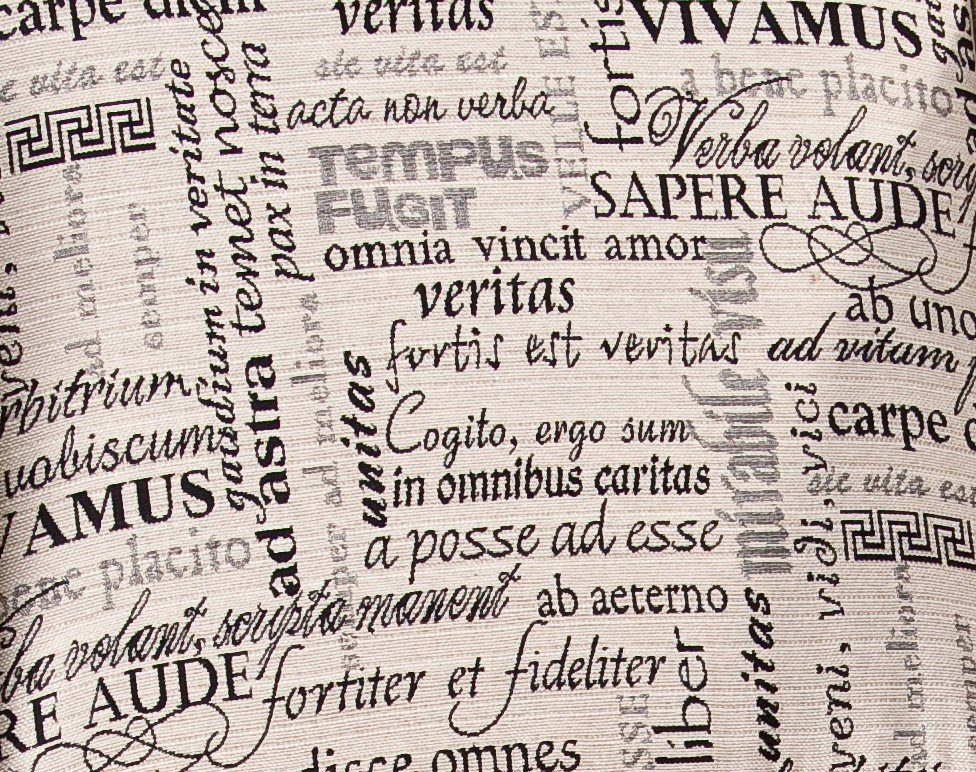 carpe diem
veritas
fortis
VIVAMUS
vita est
sic vita est
VELLE EST
a bene placito
acta non verba
Verba volant,
TEMPUS
FUGIT
SAPERE AUDE
gaudium in veritate
temet nosce
pax in terra
ad meliora
semper
omnia vincit amor
veritas
ab uno
fortis est veritas
ad vitam
mirabile visu
arbitrium
vobiscum
VIVAMUS
ad astra
ad meliora
semper
unitas
Cogito, ergo sum
in omnibus caritas
a posse ad esse
carpe
sic vita est
veni, vidi, vici
bene placito
volant, scripta manent
ab aeterno
AUDE
fortiter et fideliter
liber
unitas
ad meliora
disce omnes